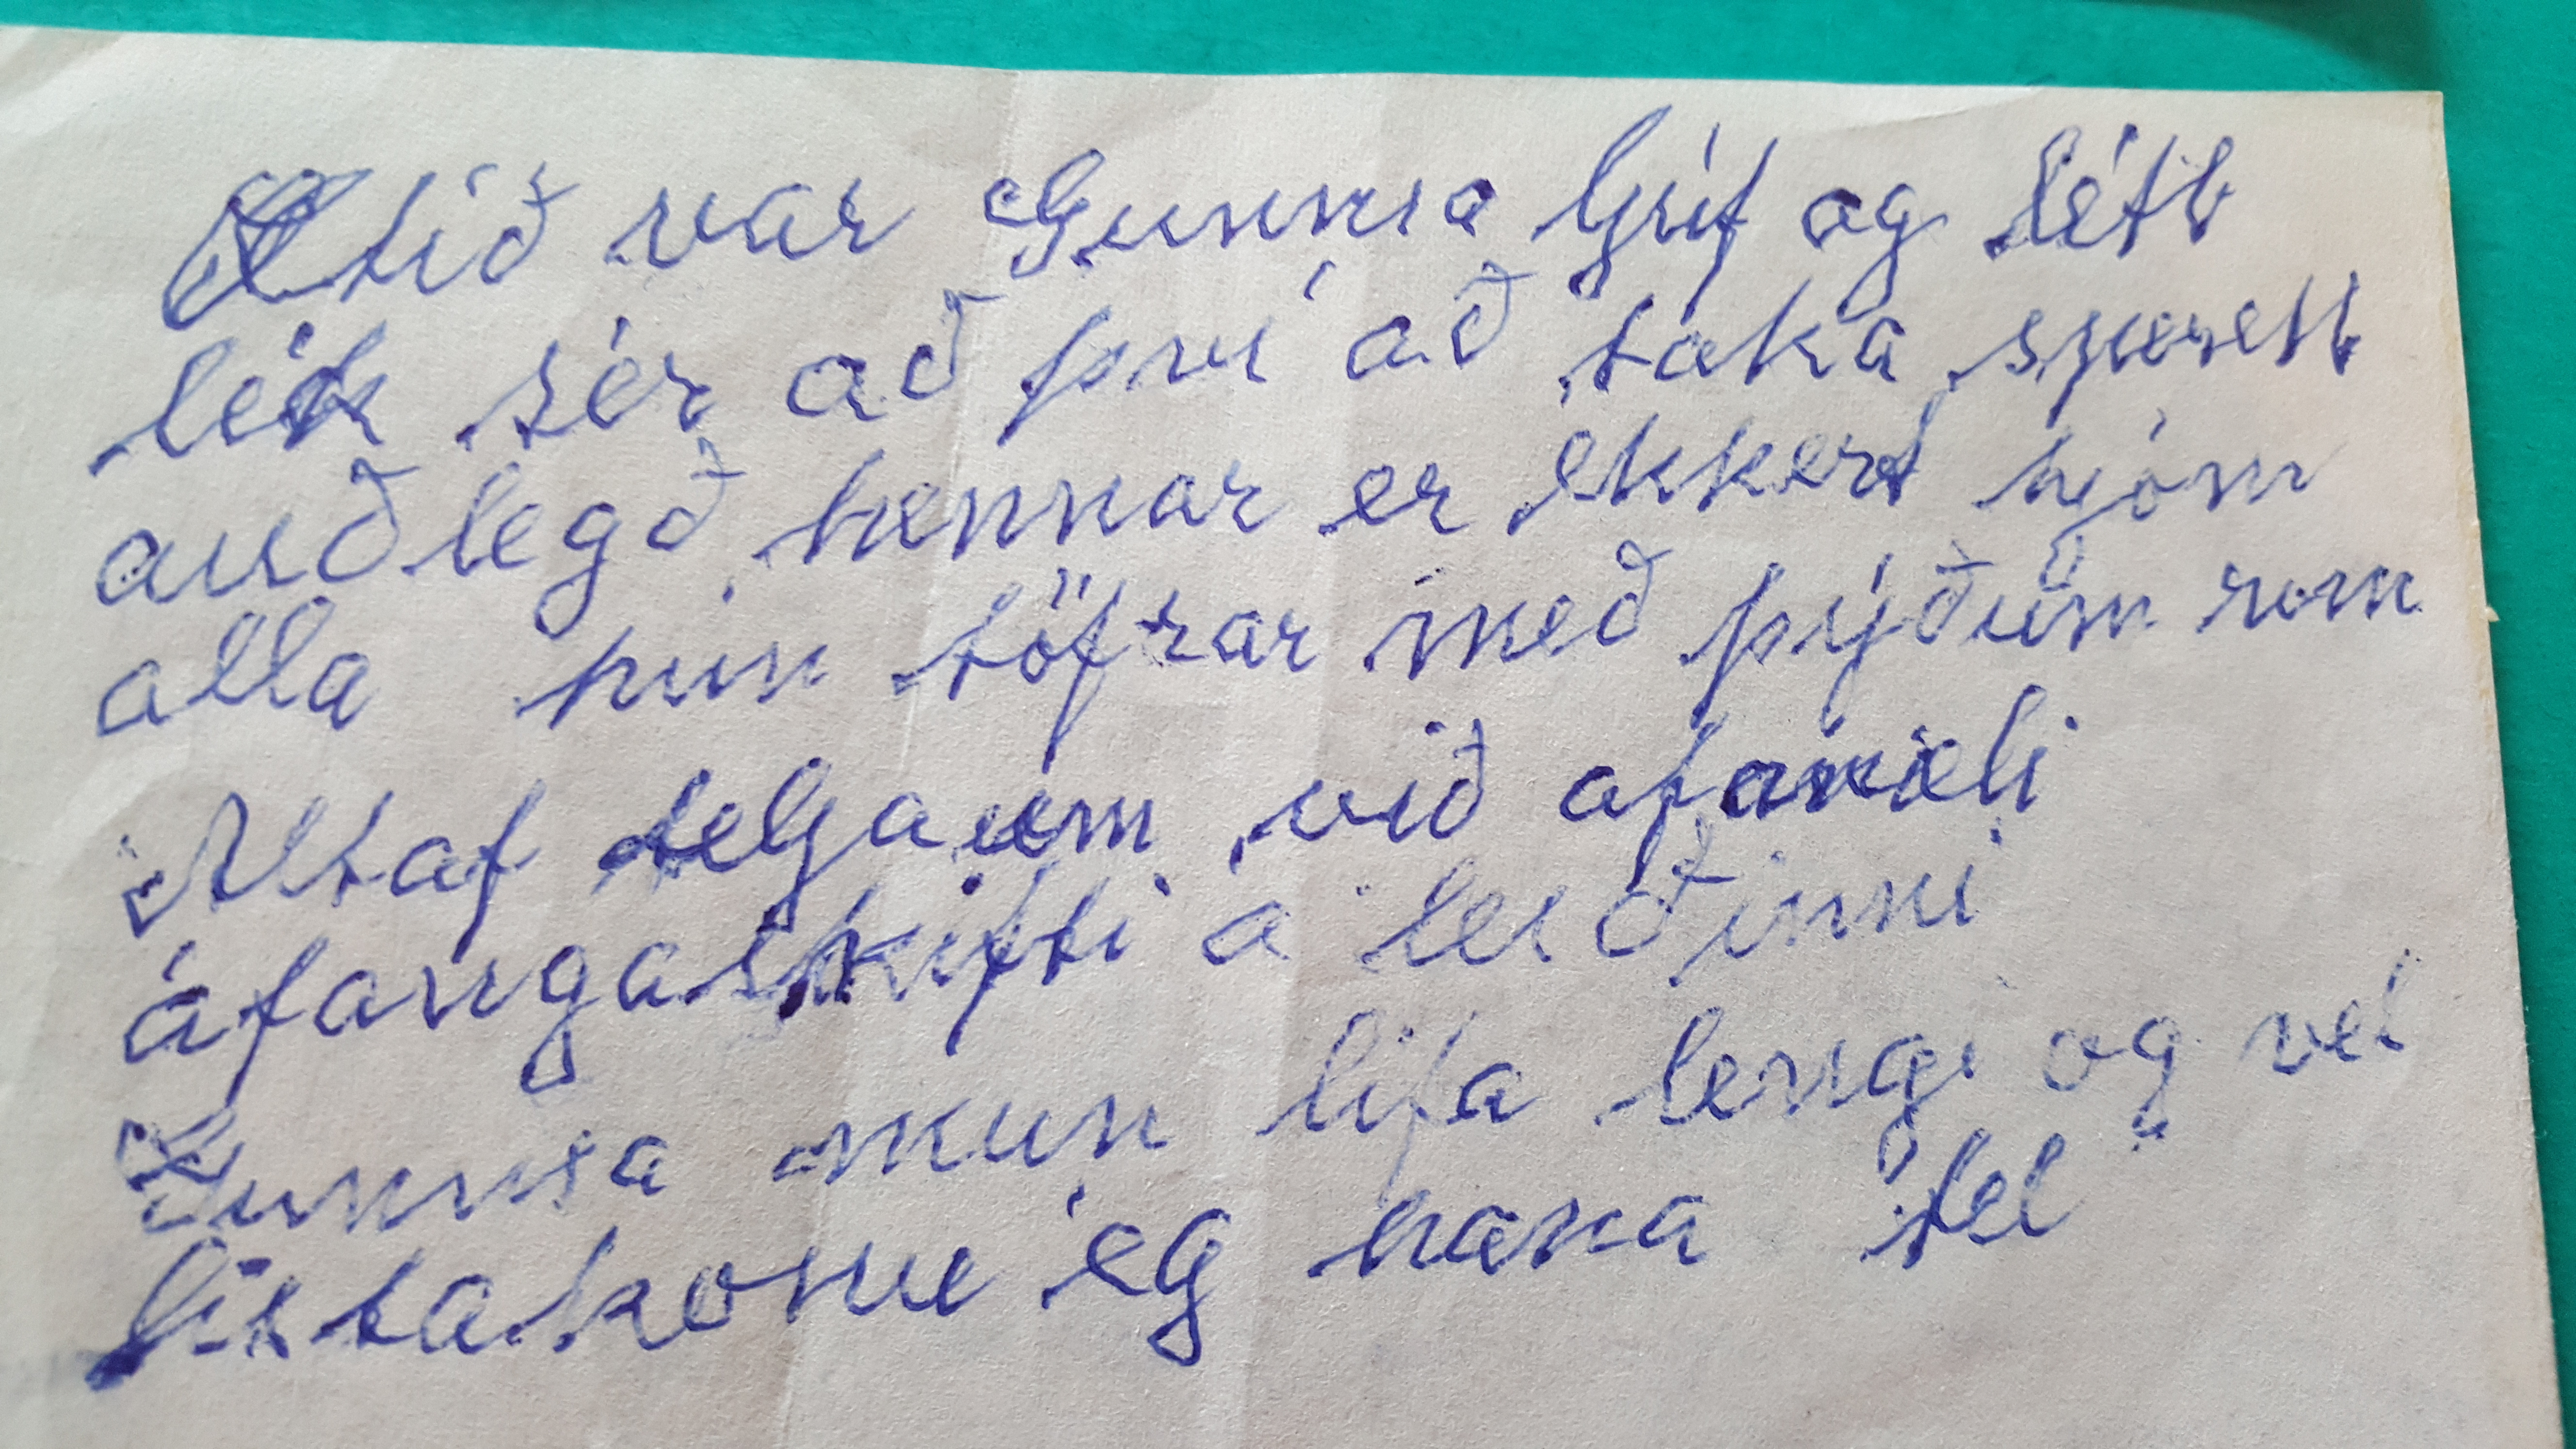 Ætið var Gunnsa ljúf og létt
lék sér að því að taka sprett
auðlegð hennar er ekkert hjóm
alla hún töfrar með þýðum róm
Altaf teljaum við afmæli
áfangaskifti á leiðinni
Gunnsa mun lifa lengi og vel
listakonu ég hana "tel"